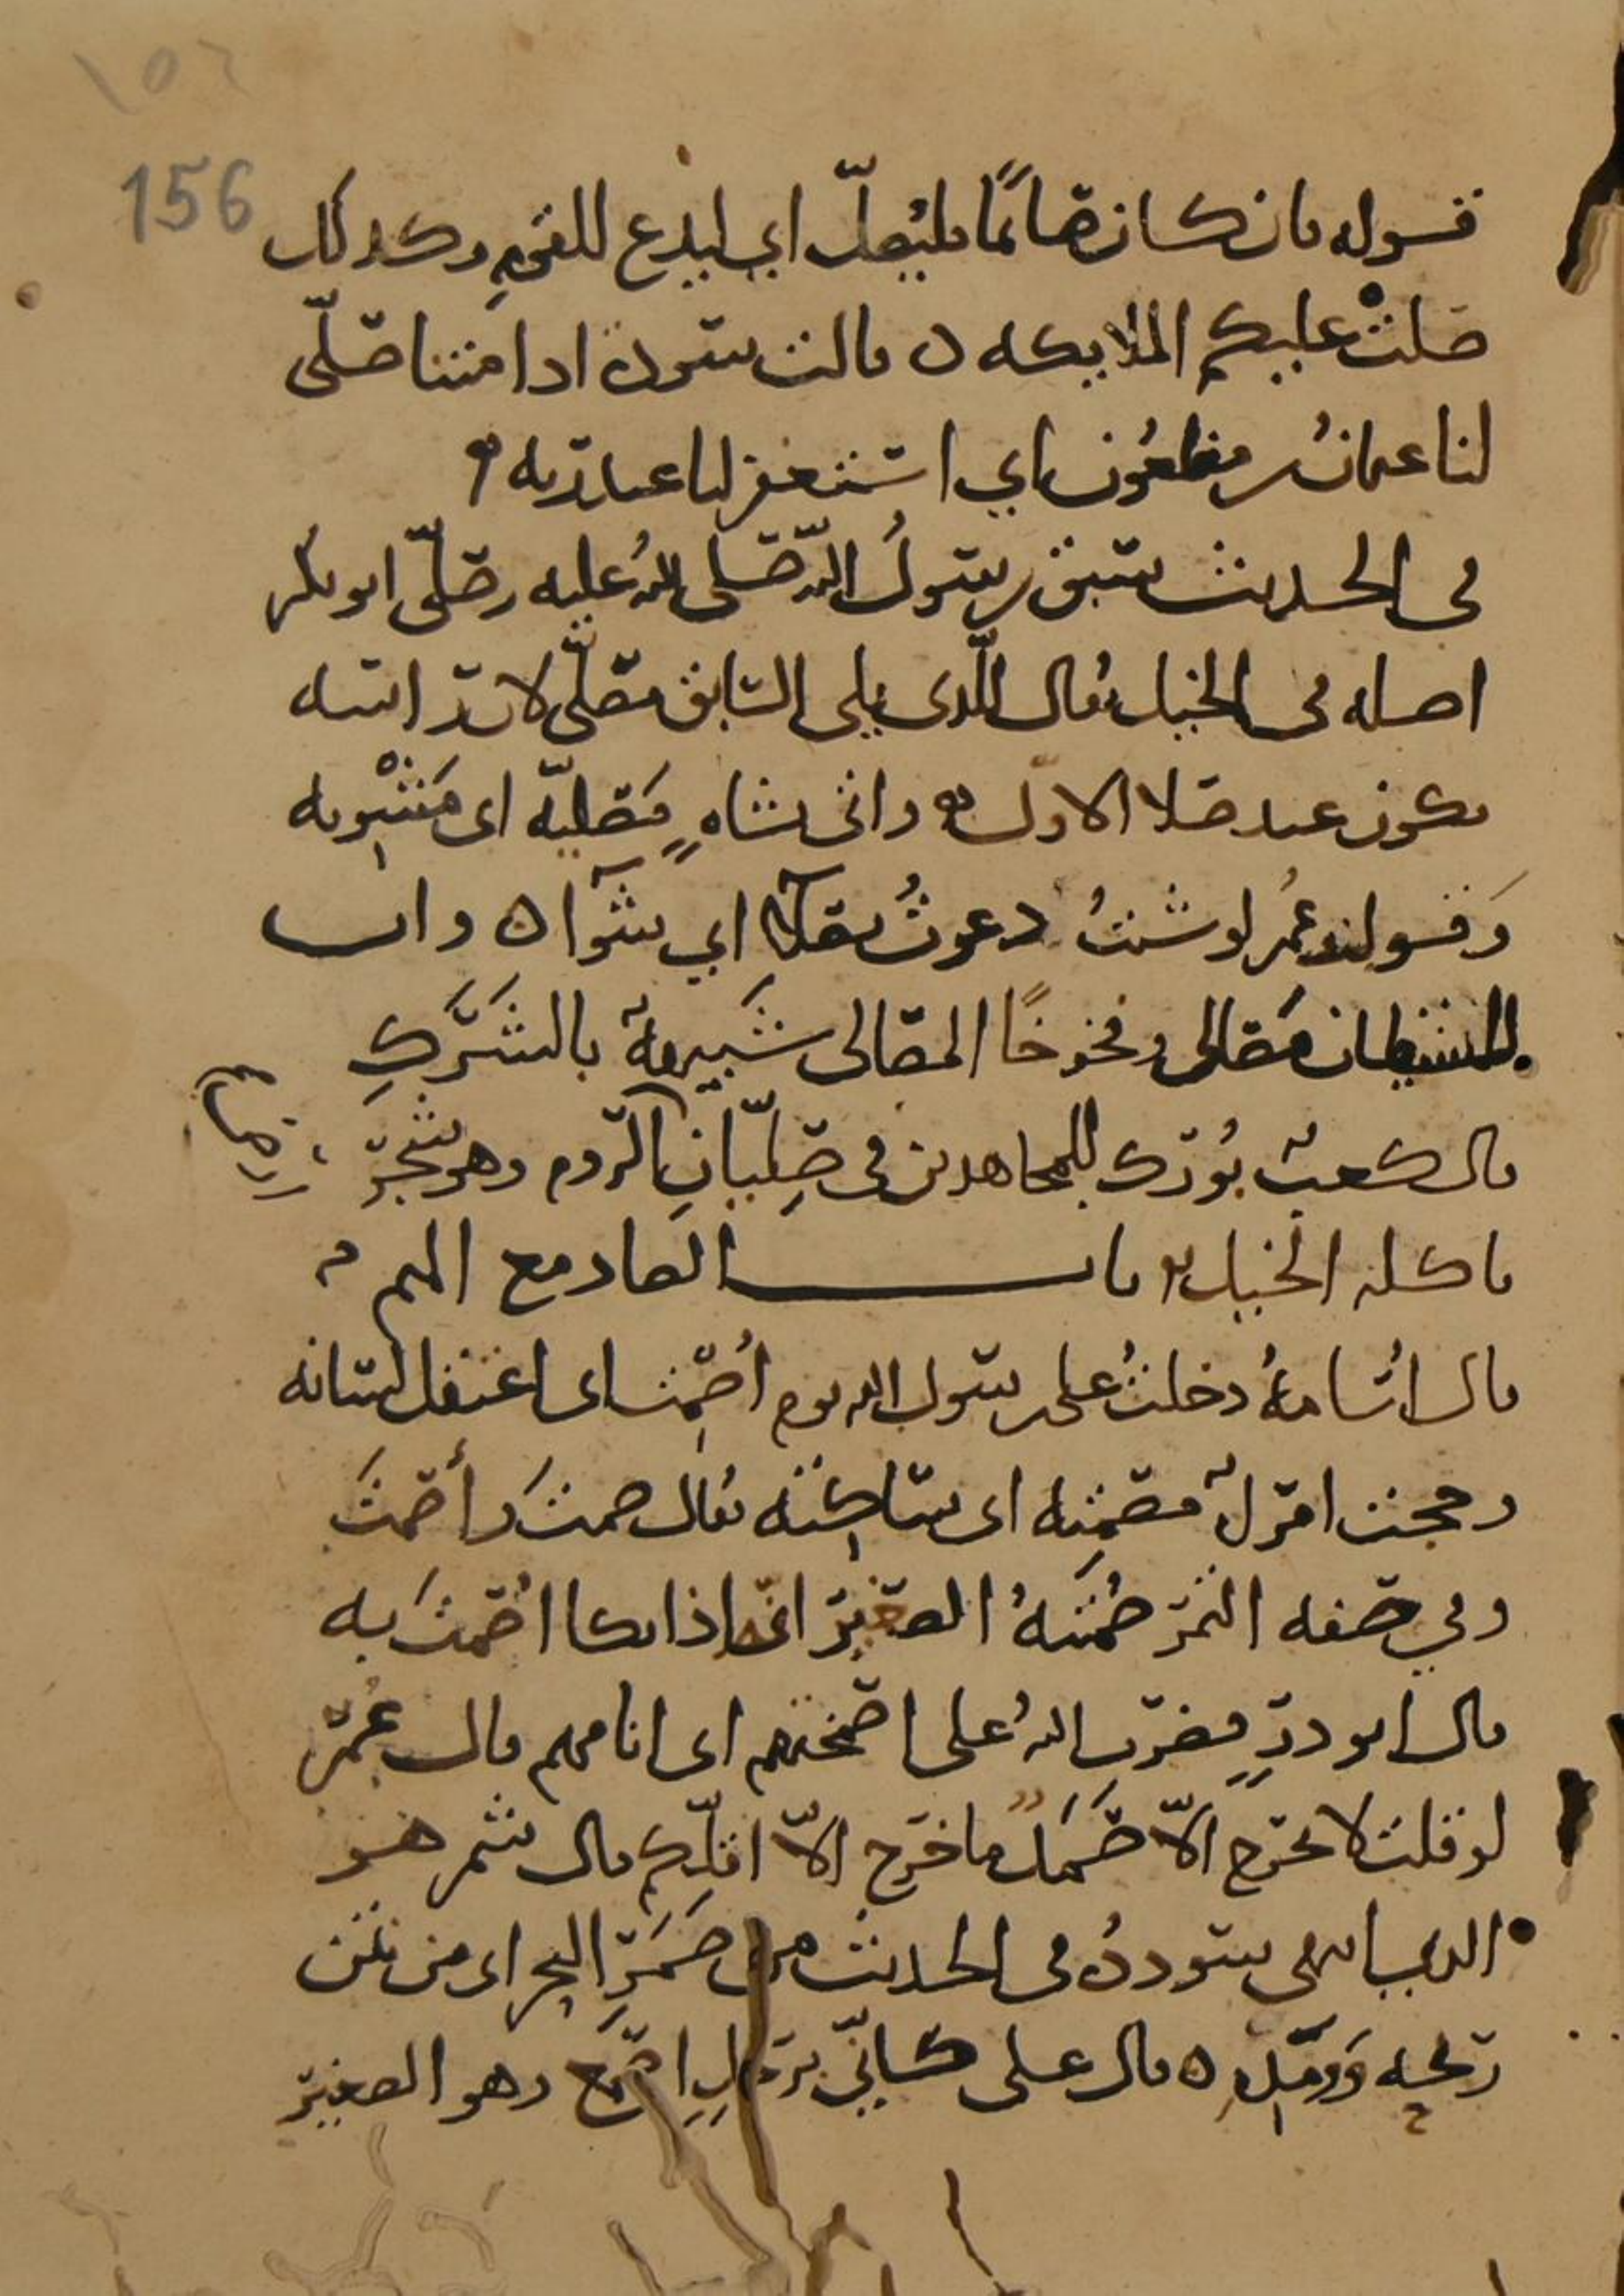 ١٥٦
156
قوله فان كان صائمًا فليصلّ اي ليدع للقوم وكذلك
صلت عليكم الملايكه ٥ قالت سوده اذا متنا صلّى
لنا عثمان بن مظعون اي استغفر لنا عند ربه
في الحديث سبق رسول الله صلى الله عليه وصلّى ابو بكر
اصله في الخيل يقال للذي يلي السابق مصلّي لان راسه
يكون عند صلا الاول واتي بشاهٍ مَصليّه اي مَشْويه
وَقول عمر لو شئتُ دعوتُ بصلآ اي بشوآ ٥ وان
للشيطان مَصالي وفخوخًا المصالي شبيهةٌ بالشَّرَكِ
قال كعب بورك للمجاهدين في صِلّيانِ الروم وهو شجر
تاكله الخيل باب الصاد مع الميم
قال اُسامهُ دخلتُ على رسول الله يوم اُصْمِت اي اعتقل لسانه
وحجت امرأةٌ مصمته اي ساكته يقال صمتَ وأصمتَ
وفي صفه التمر صُمْتَهُ الصغير انّه اذا بكا اُصْمتَ به
قال ابو ذرٍ فضرب الله على اصمختهم اي انامهم قال عُمَر
لو قلت لا يخرج الاّ صَمَلٌ ما خرج الاّ اقلّكم قال شمر هو
في الحديث من صَمَرِ البحر اي من نتن
ريحه وَومَدِه ٥ قال على كاني برجلِ اصمع وهو الصغير